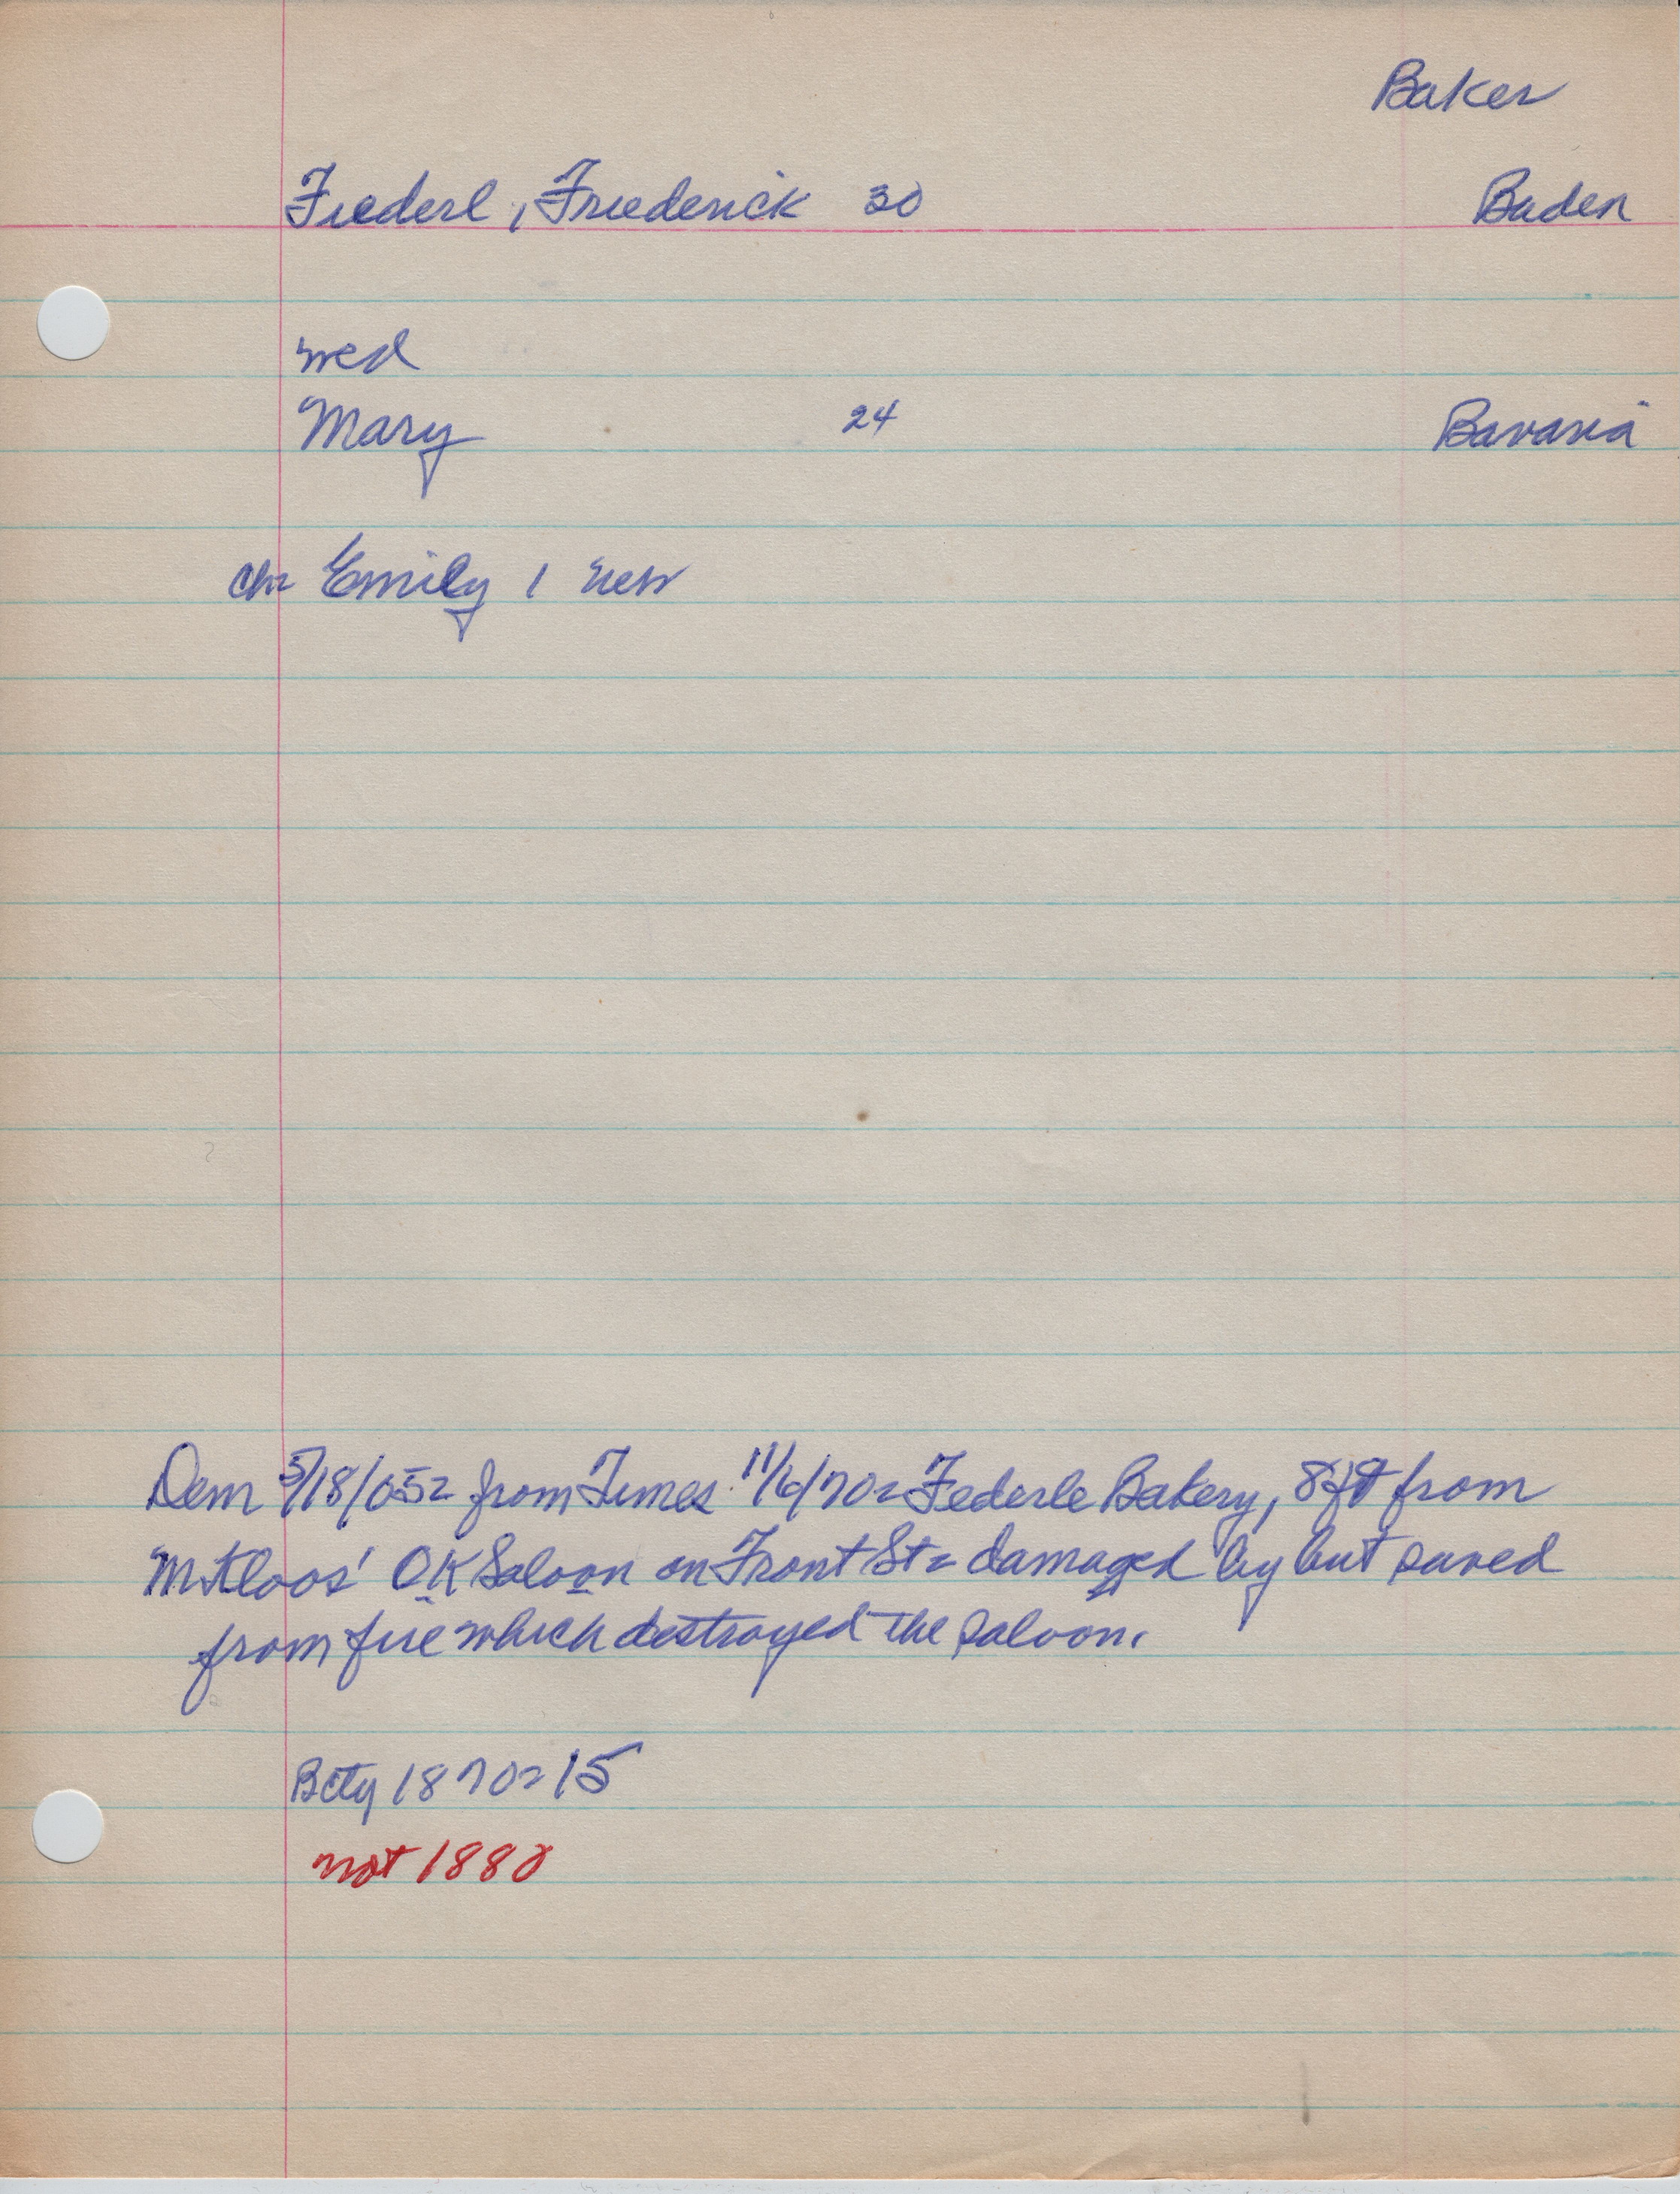 Baker
Fiederl, Friederick 30 Baden
wed
Mary 24 Bavaria
ch= Emily 1 Nev
Dem 5/18/05= from Times 11/6/70= Federle Bakery, 8 ft from
M Kloos' OK Saloon on Front St= damaged by but saved
from fire which destroyed the saloon.
Bcty 1870= 15
not 1880